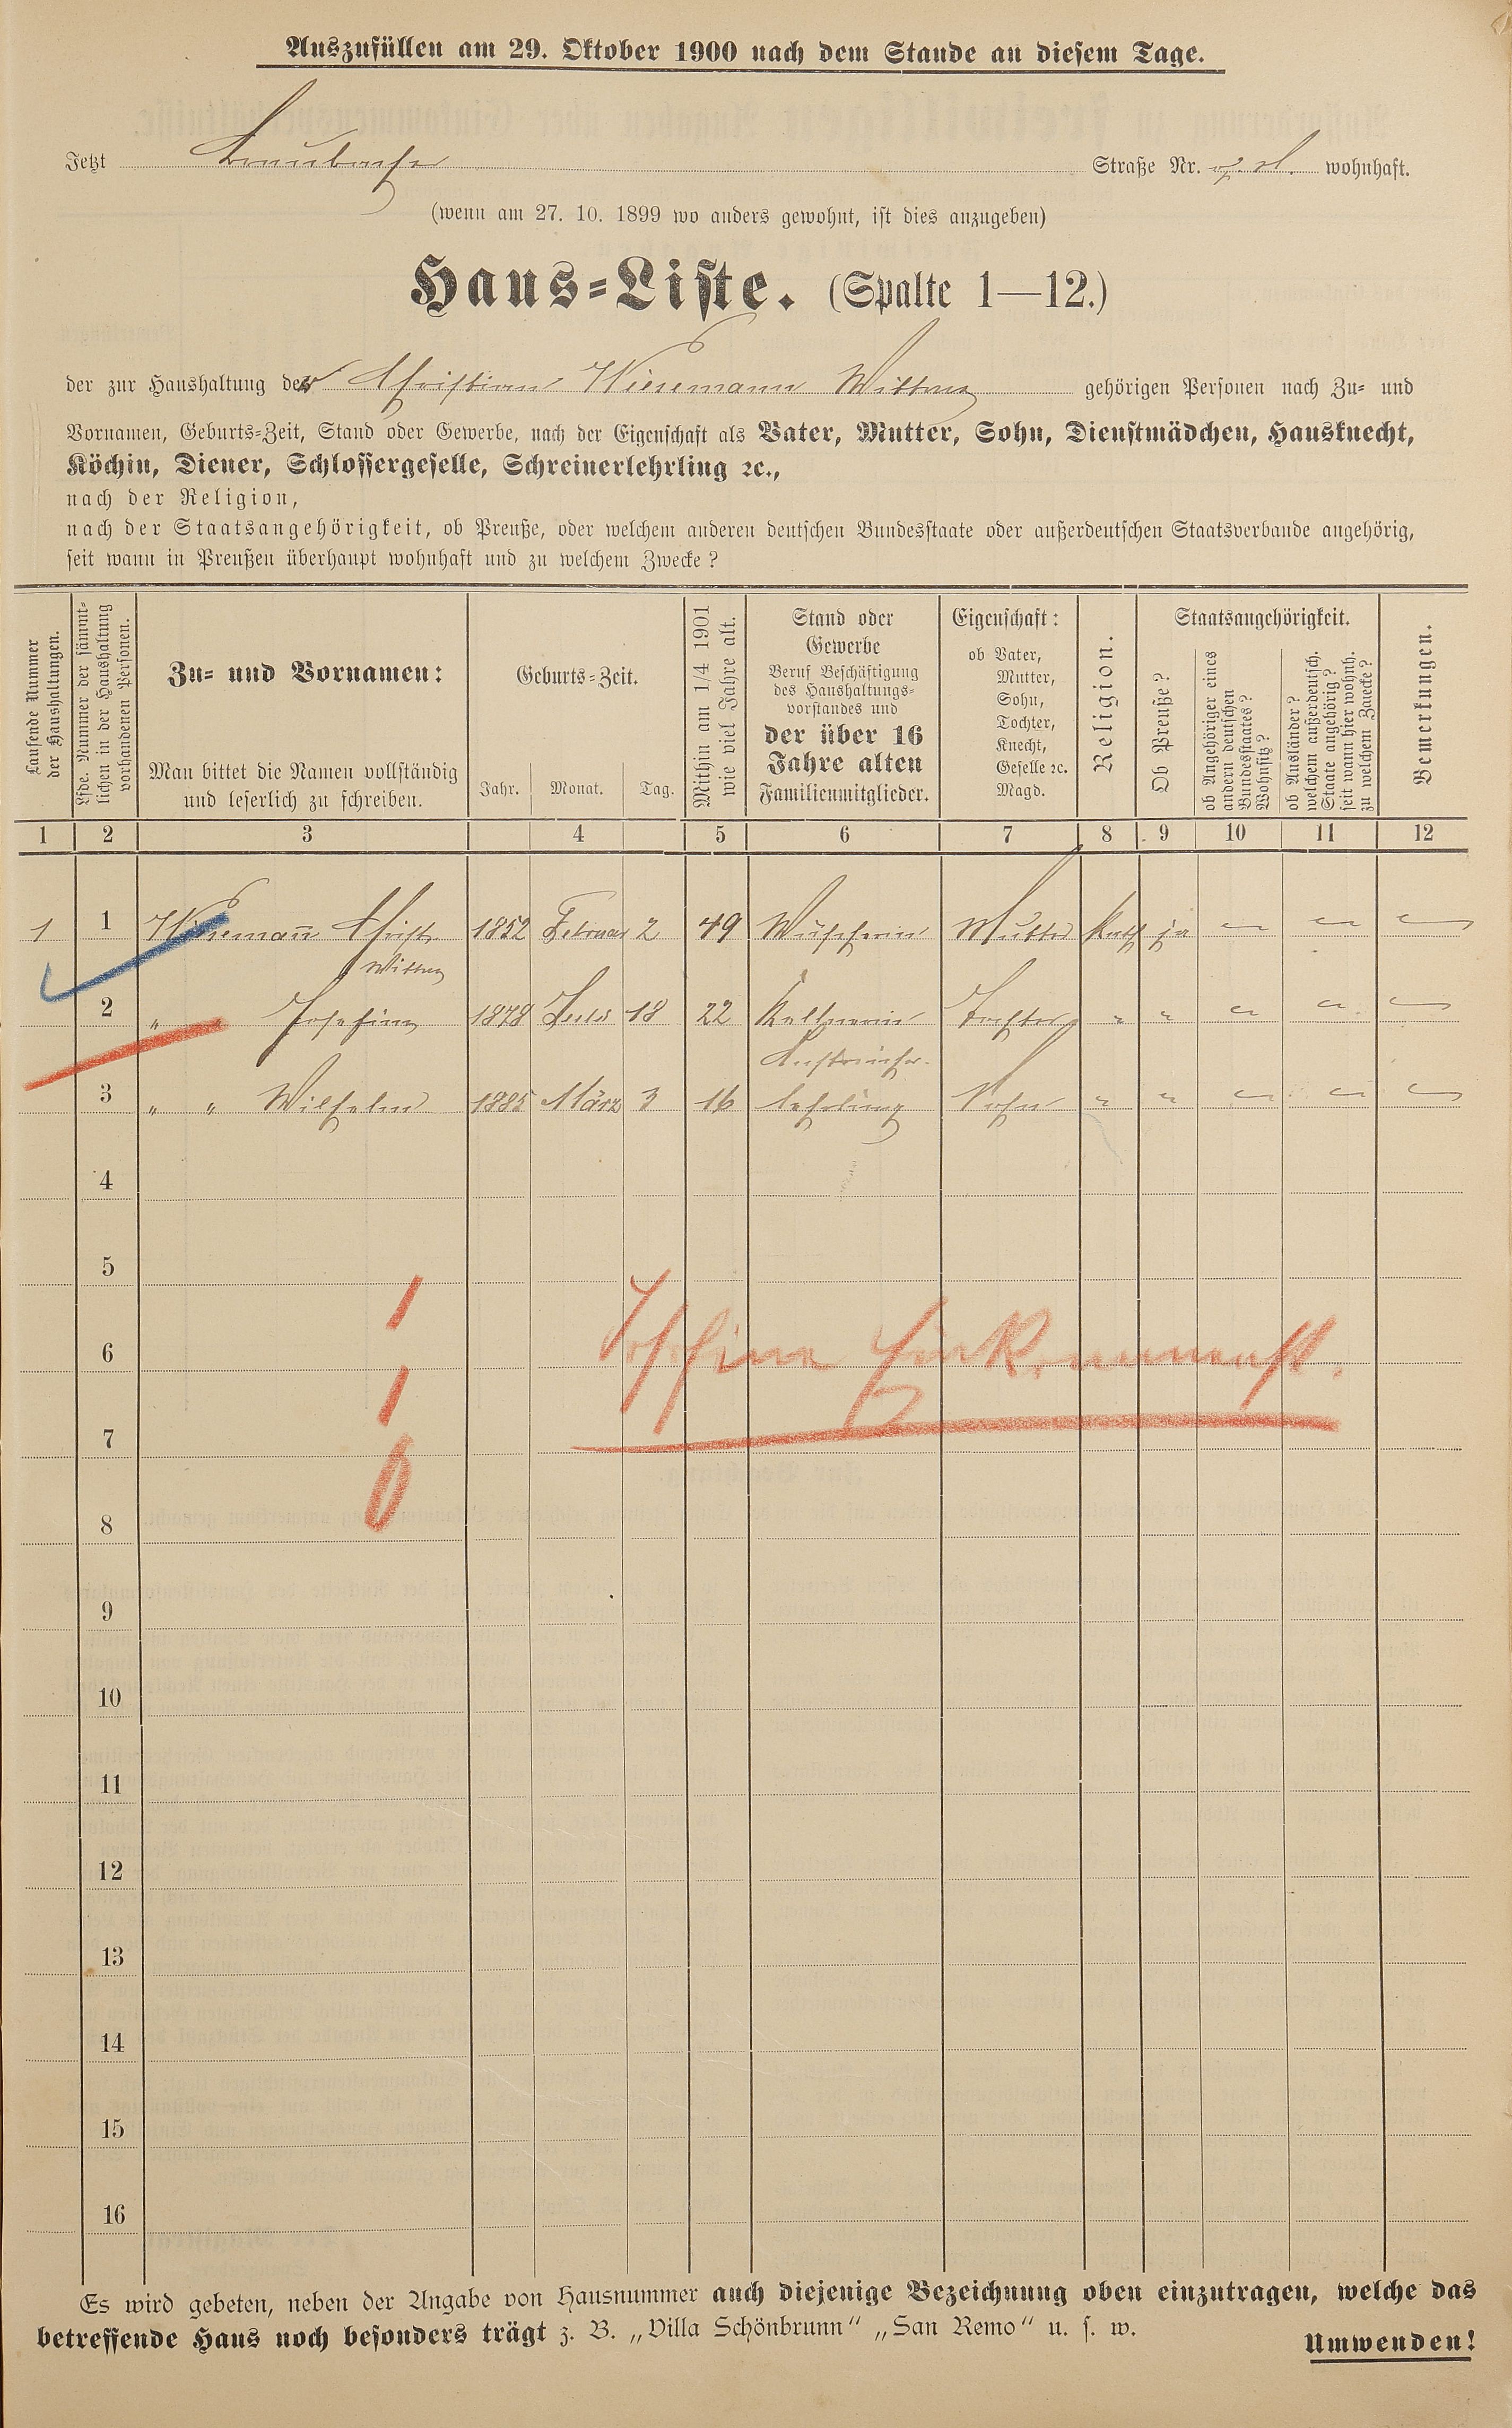 Auszufüllen am 29. Oktober 1900 nach dem Stande an diesem Tage.
Jetzt Straße Nr. wohnhaft.
(wenn am 27. 10. 1899 wo anders gewohnt, ist dies anzugeben)
Haus-Liste. (Spalte 1—12.)
der zur Haushaltung der Christian Wiesemann Wittwe gehörigen Personen nach Zu- und
Vornamen, Geburts-Zeit, Stand oder Gewerbe, nach der Eigenschaft als Vater, Mutter, Sohn, Dienstmädchen, Hausknecht,
Köchin, Diener, Schlossergeselle, Schreinerlehrling ꝛc.,
nach der Religion,
nach der Staatsangehörigkeit, ob Preuße, oder welchem anderen deutschen Bundesstaate oder außerdeutschen Staatsverbande angehörig,
seit wann in Preußen überhaupt wohnhaft und zu welchem Zwecke?
Laufende Nummer
der Haushaltungen.
Lfde. Nummer der sämmt-
lichen in der Haushaltung
vorhandenen Personen.
Zu- und Vornamen:
Man bittet die Namen vollständig
und leserlich zu schreiben.
Geburts-Zeit.
Jahr. Monat. Tag.
Mithin am 1/4 1901
wie viel Jahre alt.
Stand oder
Gewerbe
Beruf Beschäftigung
des Haushaltungs-
vorstandes und
der über 16
Jahre alten
Familienmitglieder.
Eigenschaft:
ob Vater,
Mutter,
Sohn,
Tochter,
Knecht,
Geselle ꝛc.
Magd.
Religion.
Staatsangehörigkeit.
Ob Preuße?
ob Angehöriger eines
andern deutschen
Bundesstaates?
Wohnsitz?
ob Ausländer?
welchem außerdeutsch.
Staate angehörig?
seit wann hier wohnh.
zu welchem Zwecke?
Bemerkungen.
1 2 3 4 5 6 7 8 9 10 11 12
1 1 Wiesemann Christ. 1852 Februar 2 49 Wäscherin Mutter Kath ja — — —
Wittwe
2 " Josefine 1878 18 22 Kellnerin Tochter " " — — —
Anstreicher-
3 " " Wilhelm 1885 März 3 16 lehrling Sohn " " — — —
4
5
1
6 Josefine
1
7
0
8
9
10
11
12
13
14
15
16
Es wird gebeten, neben der Angabe von Hausnummer auch diejenige Bezeichnung oben einzutragen, welche das
betreffende Haus noch besonders trägt z. B. „Villa Schönbrunn“ „San Remo“ u. s. w.
Umwenden!